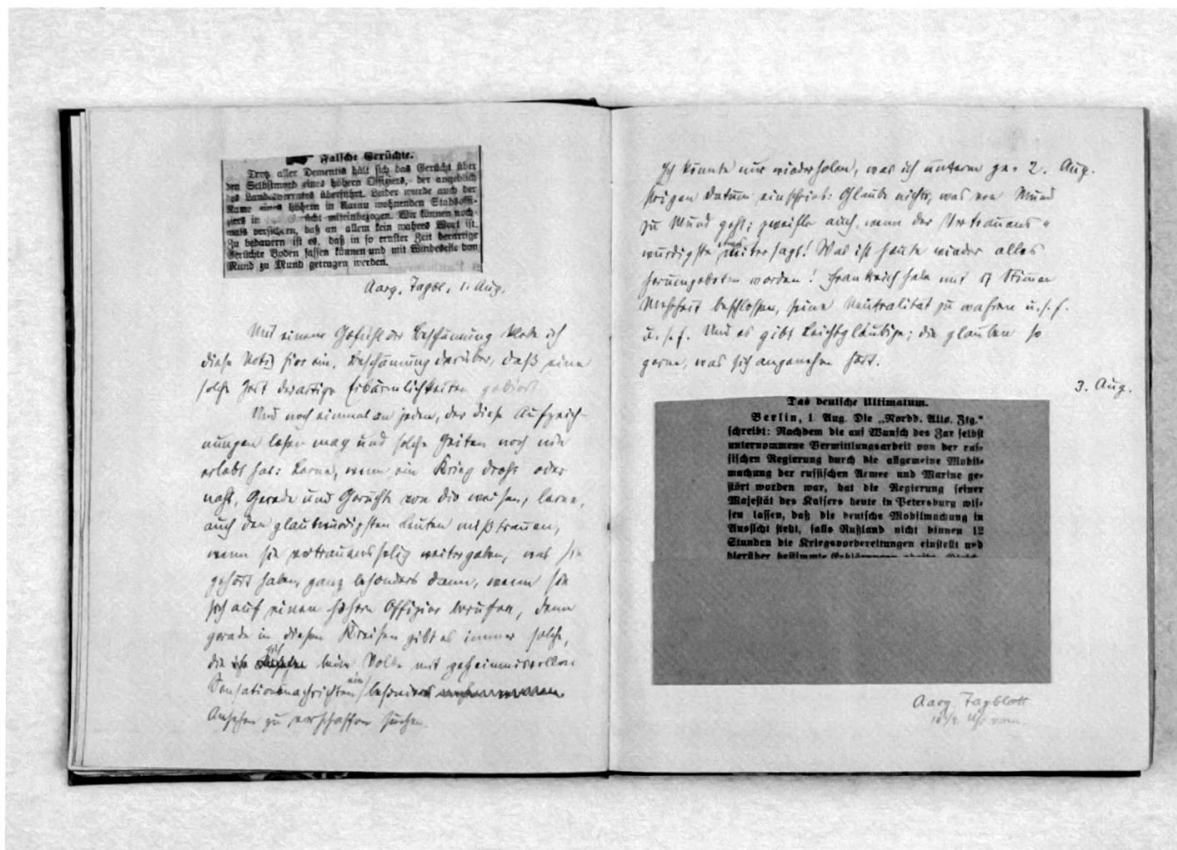 Falsche Gerüchte.
Trotz aller Dementis hält sich das Gerücht über
den Selbstmord eines höhern Offiziers, der angeblich
des Landesverrates überführt. Leider wurde auch der
Name eines höhern in Aarau wohnenden Stabsoffi-
ziers in miteinbezogen. Wir können noch-
mals versichern, daß an allem kein wahres Wort ist.
Zu bedauern ist es, daß in so ernster Zeit derartige
Gerüchte Boden fassen können und mit Windeseile von
Mund zu Mund getragen werden.
Aarg. Tagbl. 1. Aug.
Mit einem Gefühl der Beschämung klebe ich
diese Notiz hier ein. Beschämung darüber, daß eine
solche Zeit derartige Erbärmlichkeiten gebiert.
Und noch einmal an jeden, der diese Aufzeich-
nungen lesen mag und solche Zeiten noch nie
erlebt hat: Lerne, wenn ein Krieg droht oder
naht, Gerede und Gerüchte von dir weisen, lerne,
auch den glaubwürdigsten Leuten mißtrauen,
wenn sie vertrauensselig weitergeben, was sie
gehört haben, ganz besonders dann, wenn sie
sich auf einen höhern Offizier berufen, denn
gerade in diesen Kreisen gibt es immer solche,
die sich beim Volke mit geheimnisvollen
Sensationsnachrichten ein besonderes
Ansehen zu verschaffen suchen.
Ich könnte nur wiederholen, was ich unterm ges 2. Aug.
trigen Datum einschrieb: Glaube nichts, was von Mund
zu Mund geht; zweifle auch, wenn der Vertrauens-
würdigste weitersagt! Was ist heute wieder alles
herumgeboten worden! Frankreich habe mit 17 Stimmen
Mehrheit beschlossen, seine Neutralität zu wahren u.s.f.
u.s.f. Und es gibt Leichtgläubige; die glauben so
gerne, was sich angenehm hört.
3. Aug.
Das deutsche Ultimatum.
Berlin, 1 Aug. Die „Nordd. Allg. Ztg."
schreibt: Nachdem die auf Wunsch des Zar selbst
unternommene Vermittlungsarbeit von der rus-
sischen Regierung durch die allgemeine Mobil-
machung der russischen Armee und Marine ge-
stört worden war, hat die Regierung seiner
Majestät des Kaisers heute in Petersburg wis-
sen lassen, daß die deutsche Mobilmachung in
Aussicht steht, falls Rußland nicht binnen 12
Stunden die Kriegsvorbereitungen einstellt und
hierüber bestimmte Erklärungen
Aarg. Tagblatt
Uhr vorm.